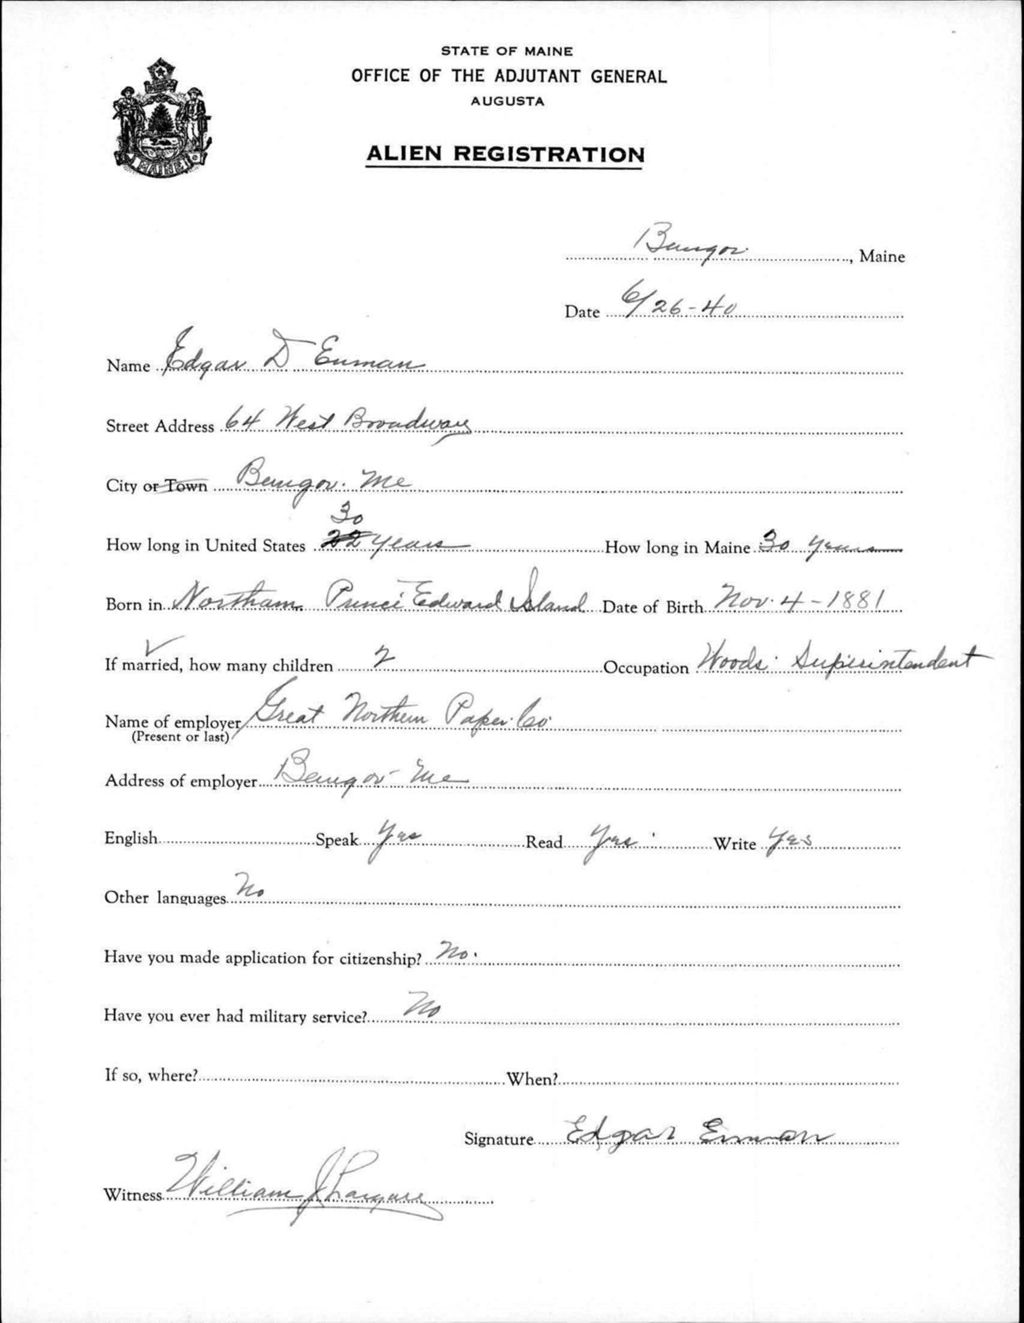 STATE OF MAINE
OFFICE OF THE ADJUTANT GENERAL
AUGUSTA
ALIEN REGISTRATION
Bangor, Maine
Date 6/26-40
Name Edgar D Enman
Street Address 64 West Broadway
City or Town Bangor. Me
30
How long in United States 22 years How long in Maine 30 years
Born in Northam Prince Edward Island Date of Birth Nov. 4-1881
If married, how many children 2 Occupation Woods Superintendent
Name of employer Great Northern Paper Co.
(Present or last)
Address of employer Bangor Me
English Speak Yes Read Yes Write Yes
Other languages No
Have you made application for citizenship? No.
Have you ever had military service? No
If so, where? When?
Signature Edgar Enman
Witness William J